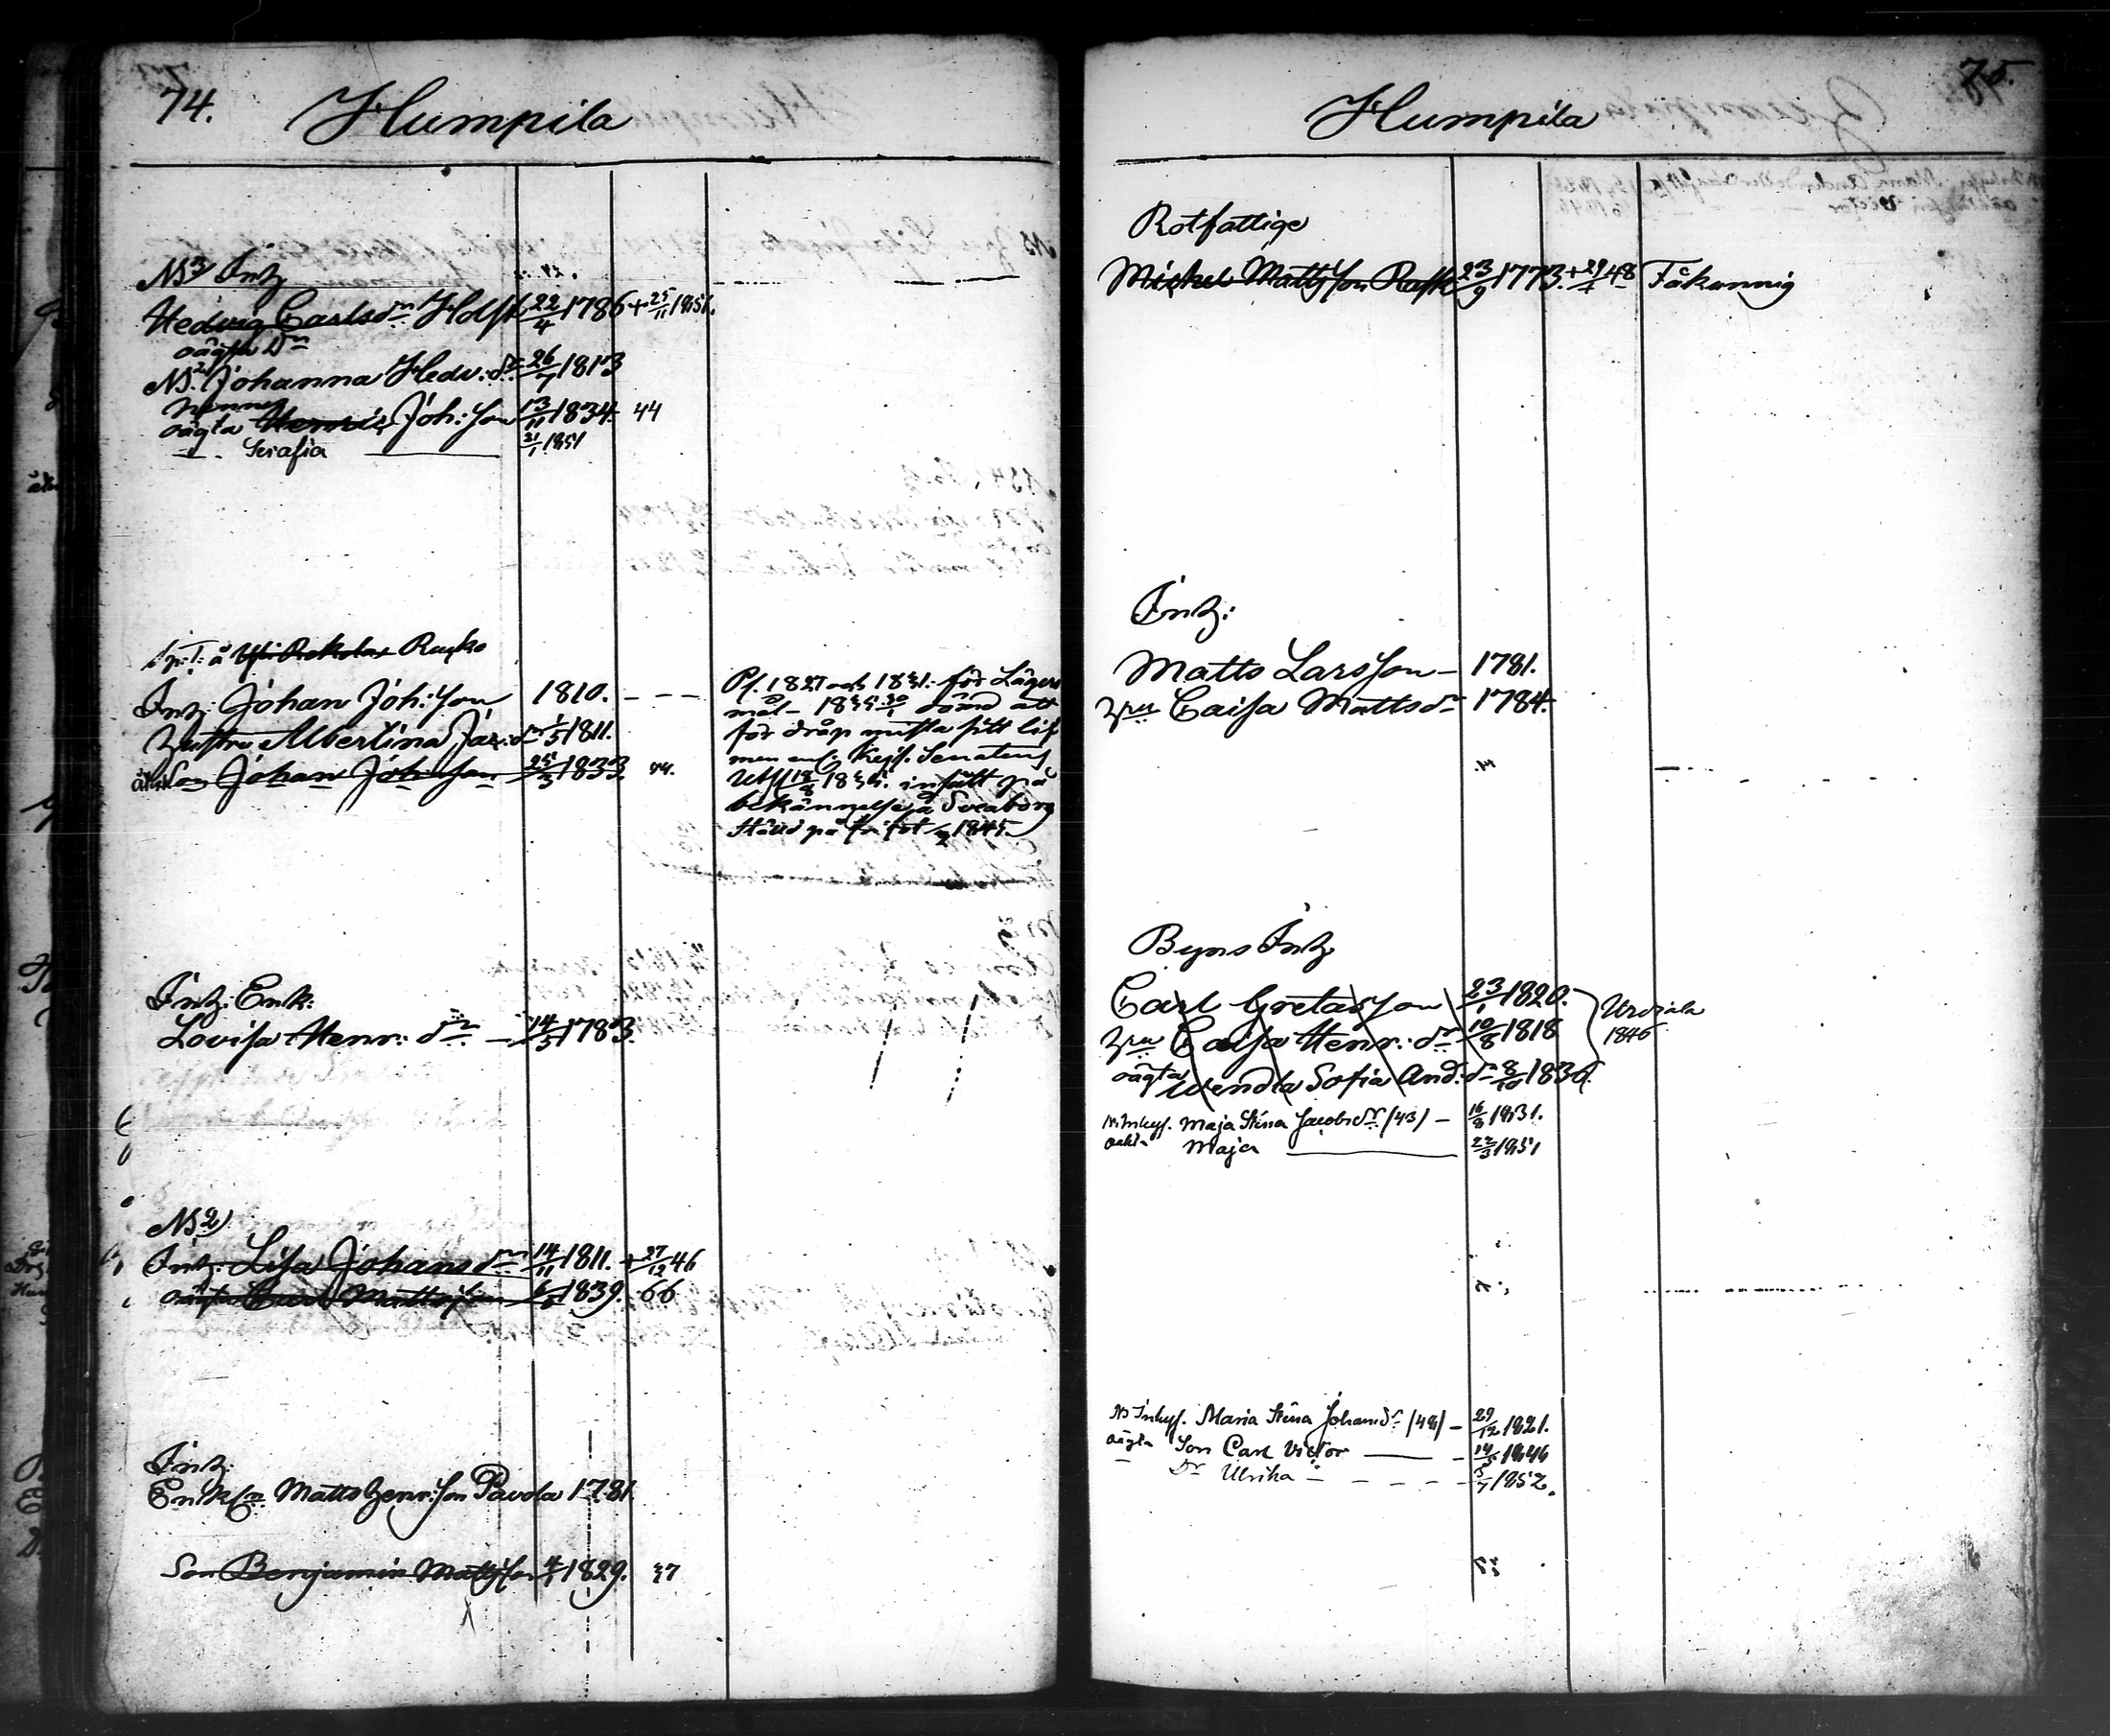 74. Humpila
N.B. 3 Inh.
Hedvig Carlsdr Holst 22/4 1786 + 25/11 1851.
oägta Dr
N.B. 2 Johanna Hedv: dr 26/7 1813
oägta Henric Joh: son 13/11 1834 44
— Serafia 21/1 1851
Sp. T: å Rekola Ruuko
Inh. Johan Joh: son 1810.
Hustru Albertina Jac: dr 1/5 1811.
Son Johan Johansson 25/3 1833. 44.
Pl. 1827 och 1831. för Lägers
mål 1835 30/1 dömd att
för dråp mista sitt lif
men enl. Kejs. Senatens
Utsl 18/8 1835. insatt på
bekännelse å Sveaborg
Ställd på fri fot 1845.
Inh: Enk:
Lovisa Henr: dr 14/5 1783.
N.B. 2
Inh: Lisa Johansdr 14/11 1811. + 27/12 46
oägta Carl Mattsson 6/5 1839. 66
Inh.
Enkln Matts Henr: son Pavola 1781.
Son Benjamin Mattsson 4/1 1829. 57
75.
Humpila
Rotfattige
Mickel Mattsson Rask 23/9 1773. + 29/4 48 Fåkunnig
Inh:
Matts Larsson 1781.
Hru Caisa Mattsdr 1784.
Byns Inh
Carl Gretasson 23/1 1820. Urdiala
Hru Caisa Henr: dr 10/8 1818 1846
oägta Wendla Sofia And: dr 8/10 1836.
N.B. Inhys. Maja Stina Jacobsdr (43) 16/8 1831.
oäkta Maja 22/3 1851
N.B. Inhys. Maria Stina Johansdr (48) 29/12 1821.
oägta Son Carl Victor 14/5 1846
— Dr Ulrika 5/7 1852.